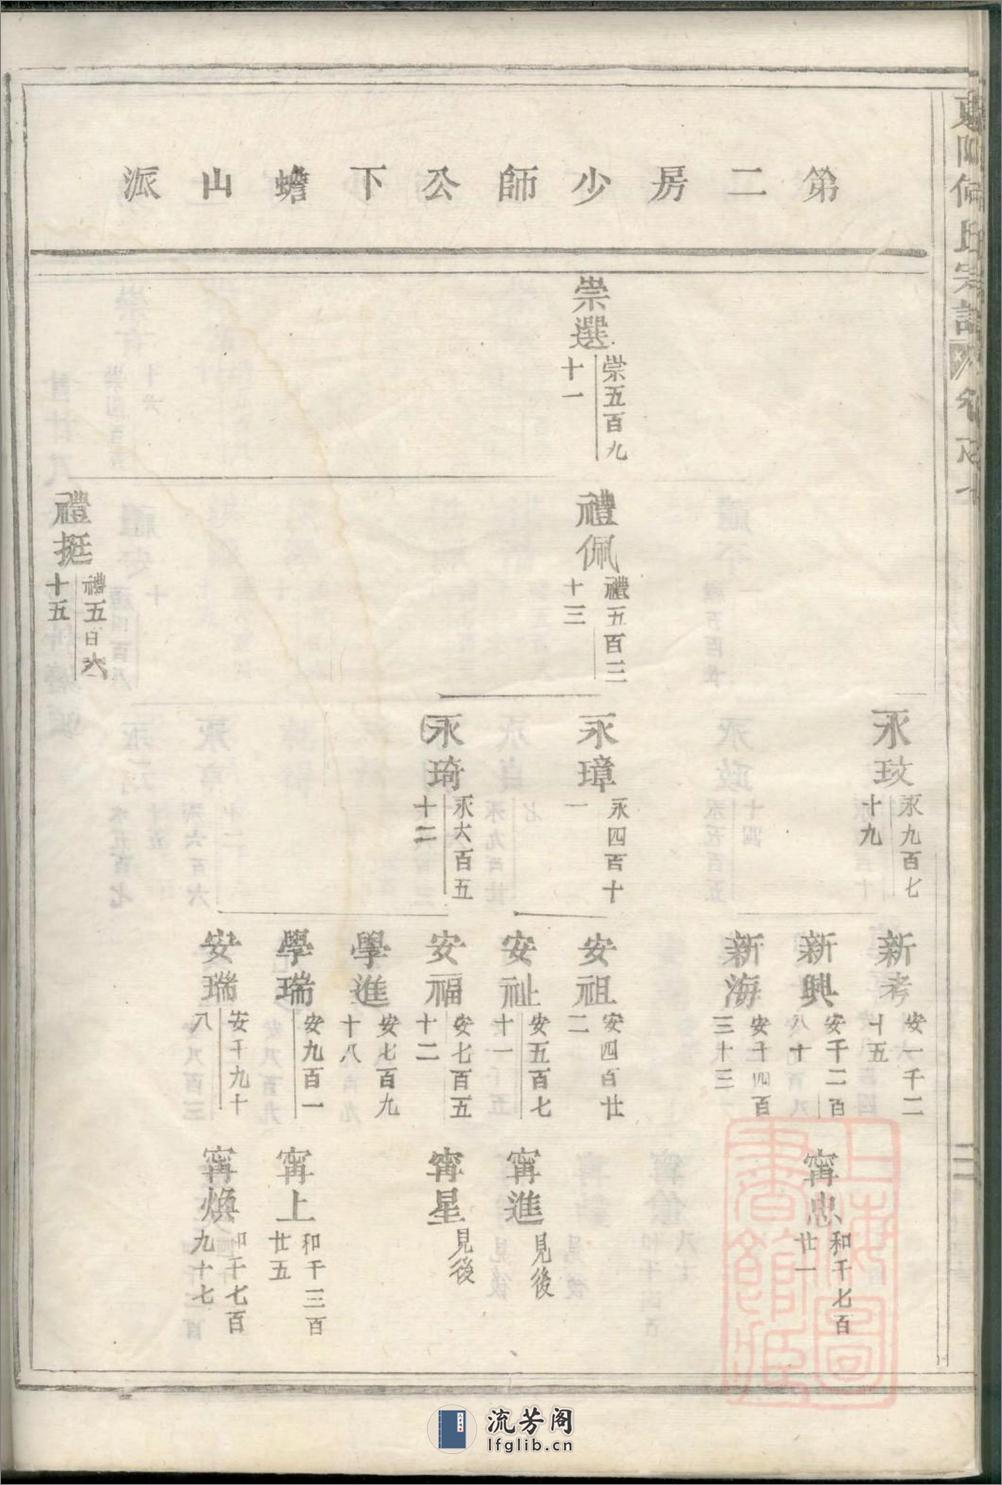 第二房少師公下蟾山派
崇選
崇五百九
十一
禮佩
禮五百三
十三
禮挺
禮五百六
十五
永玟
永九百七
十九
永璋
永四百十
一
永琦
永六百五
十二
新考
安一千二
十五
新興
安千二百
八十
新海
安千四百
三十三
安祖
安四百廿
二
安祉
安五百七
十一
安福
安七百五
十二
學進
安七百九
十八
學瑞
安九百一
安瑞
安千九十
八
甯忠
和千七百
廿一
甯進
見後
甯星
見後
甯上
和千三百
廿五
甯煥
和千七百
九十七
二
上海圖
書館藏
流芳阁
lfglib.cn